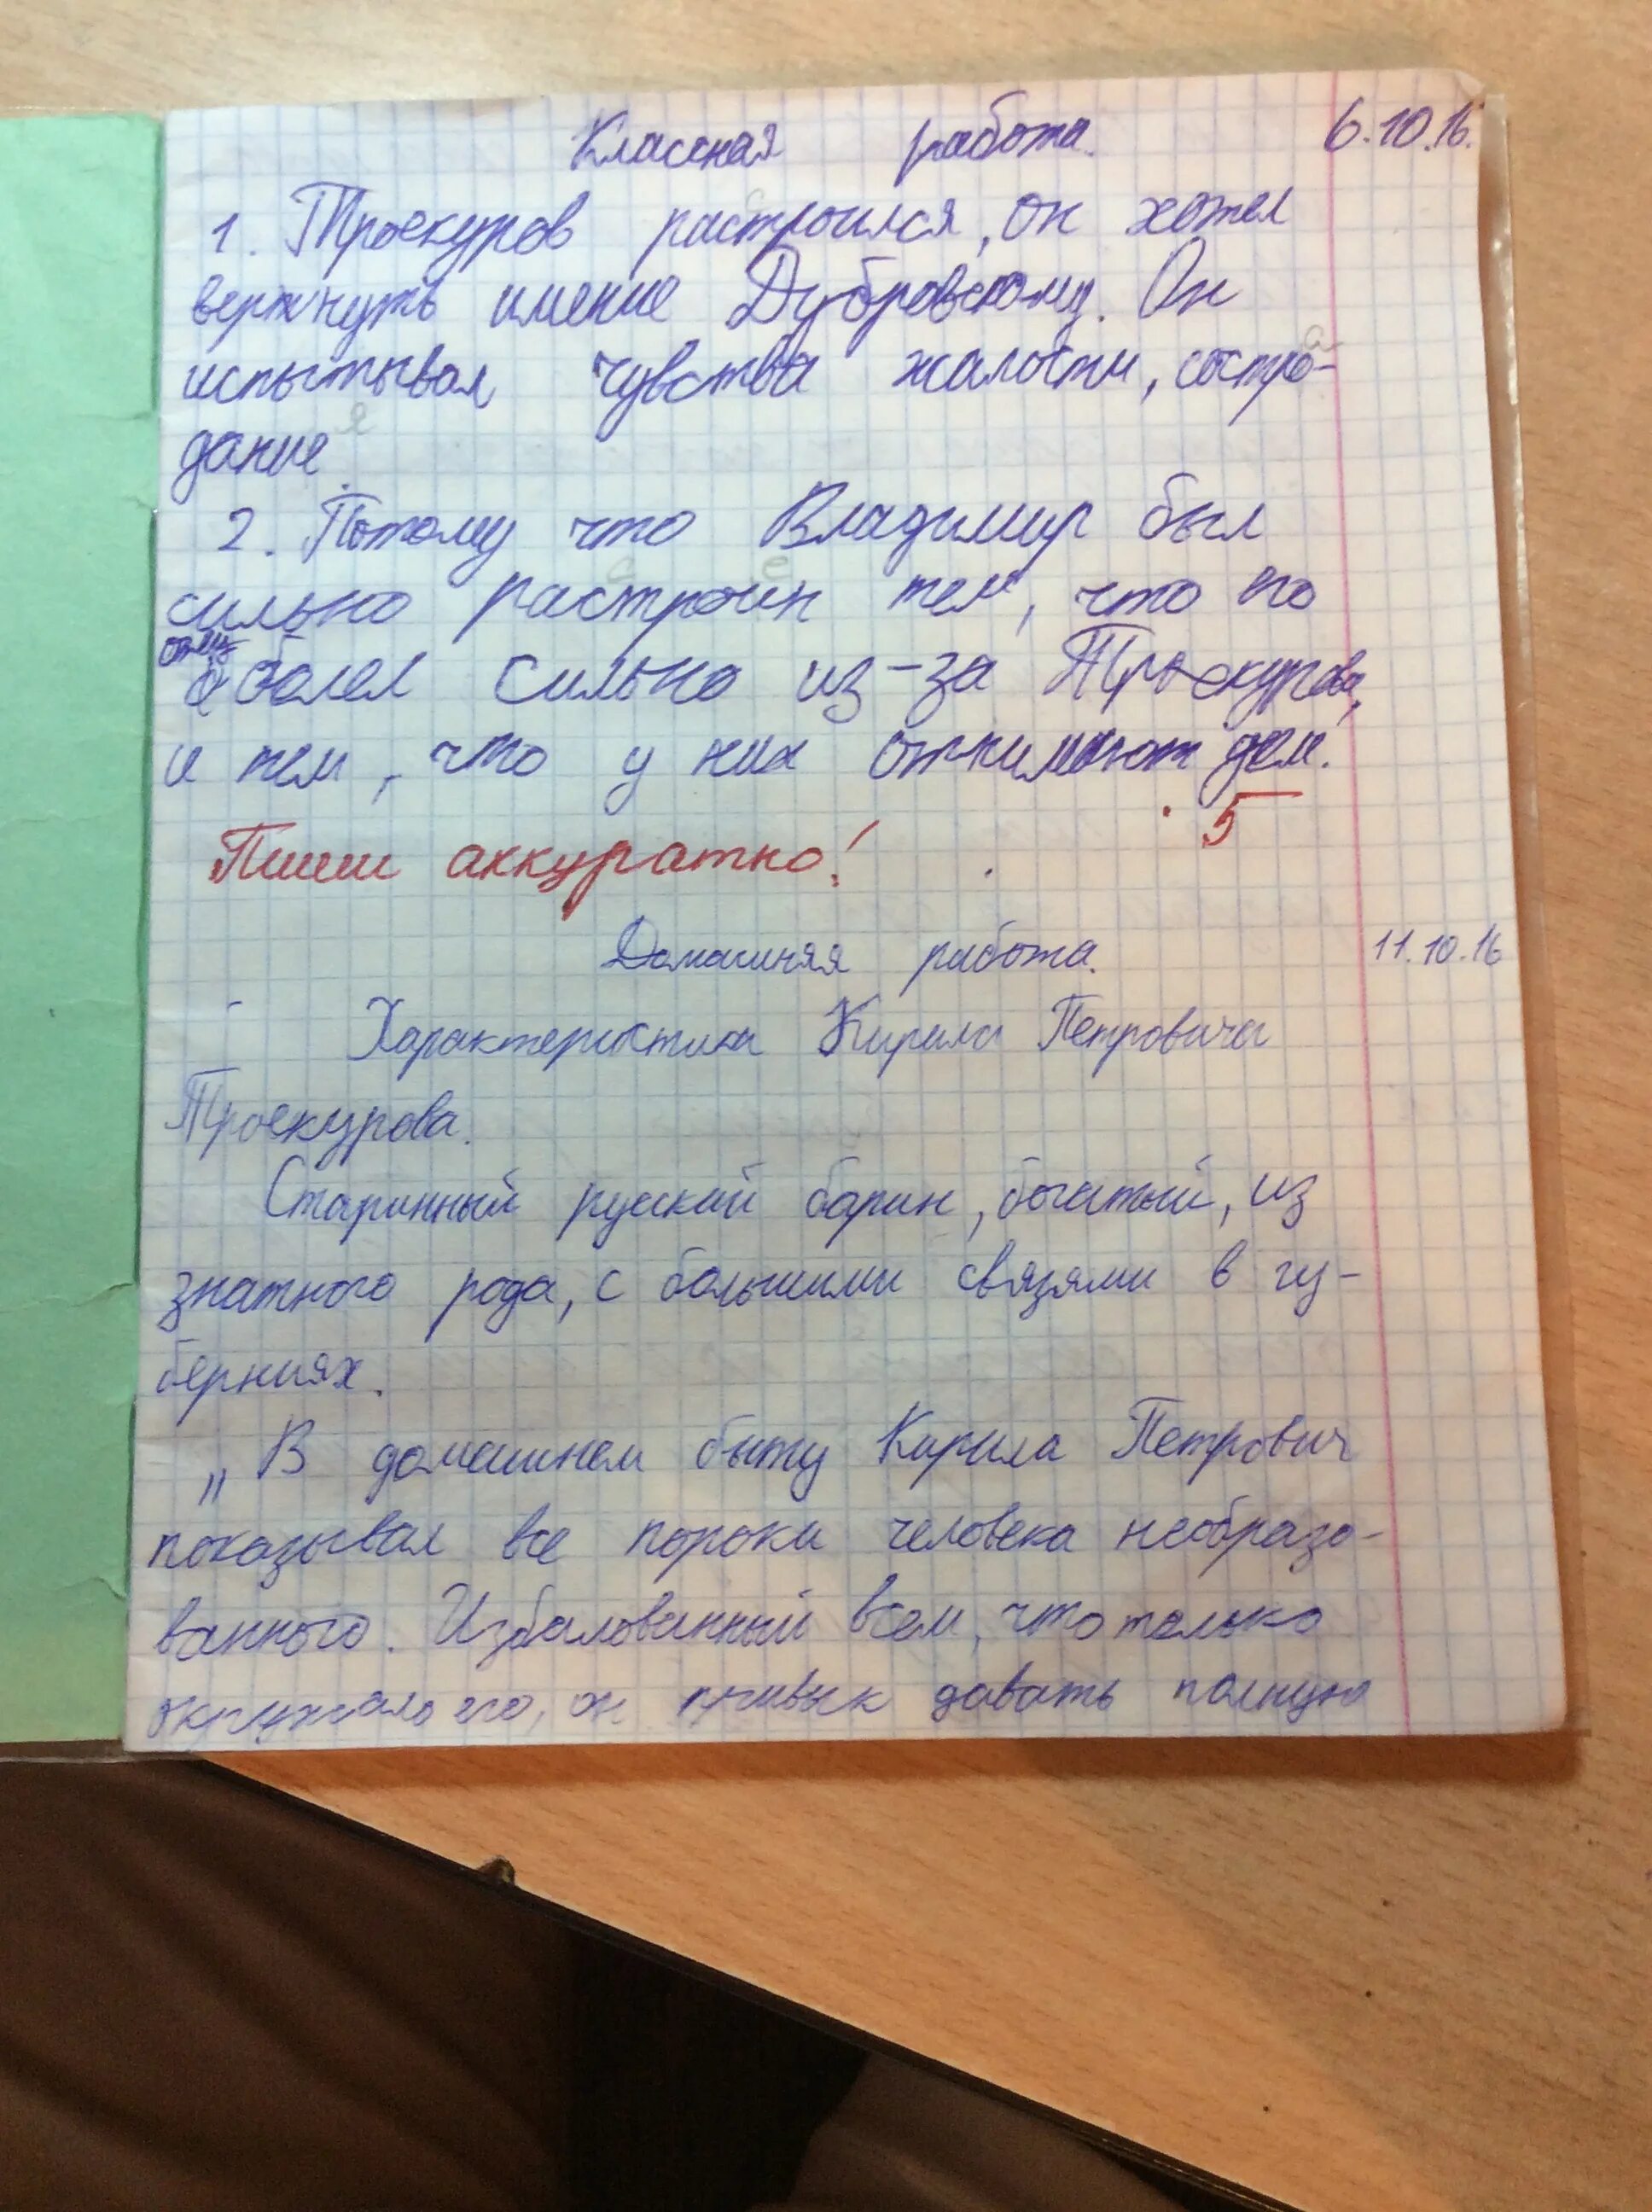 Классная работа. 6.10.16.
1. Троекуров растроился, он хотел
вернуть имение Дубровскому. Он
испытывал чувства жалости, состро-
дание.
2. Потому что Владимир был
сильно растроин тем, что его
отец
заболел сильно из-за Троекурова,
и тем, что у них отнимают дом.
5
Пиши аккуратно!
Домашняя работа. 11.10.16
Характеристика Кирила Петровича
Троекурова.
Старинный русский барин, богатый, из
знатного рода, с большими связями в гу-
берниях.
„В домашнем быту Кирила Петрович
показывал все пороки человека необразо-
ванного. Избалованный всем, что только
окружало его, он привык давать полную